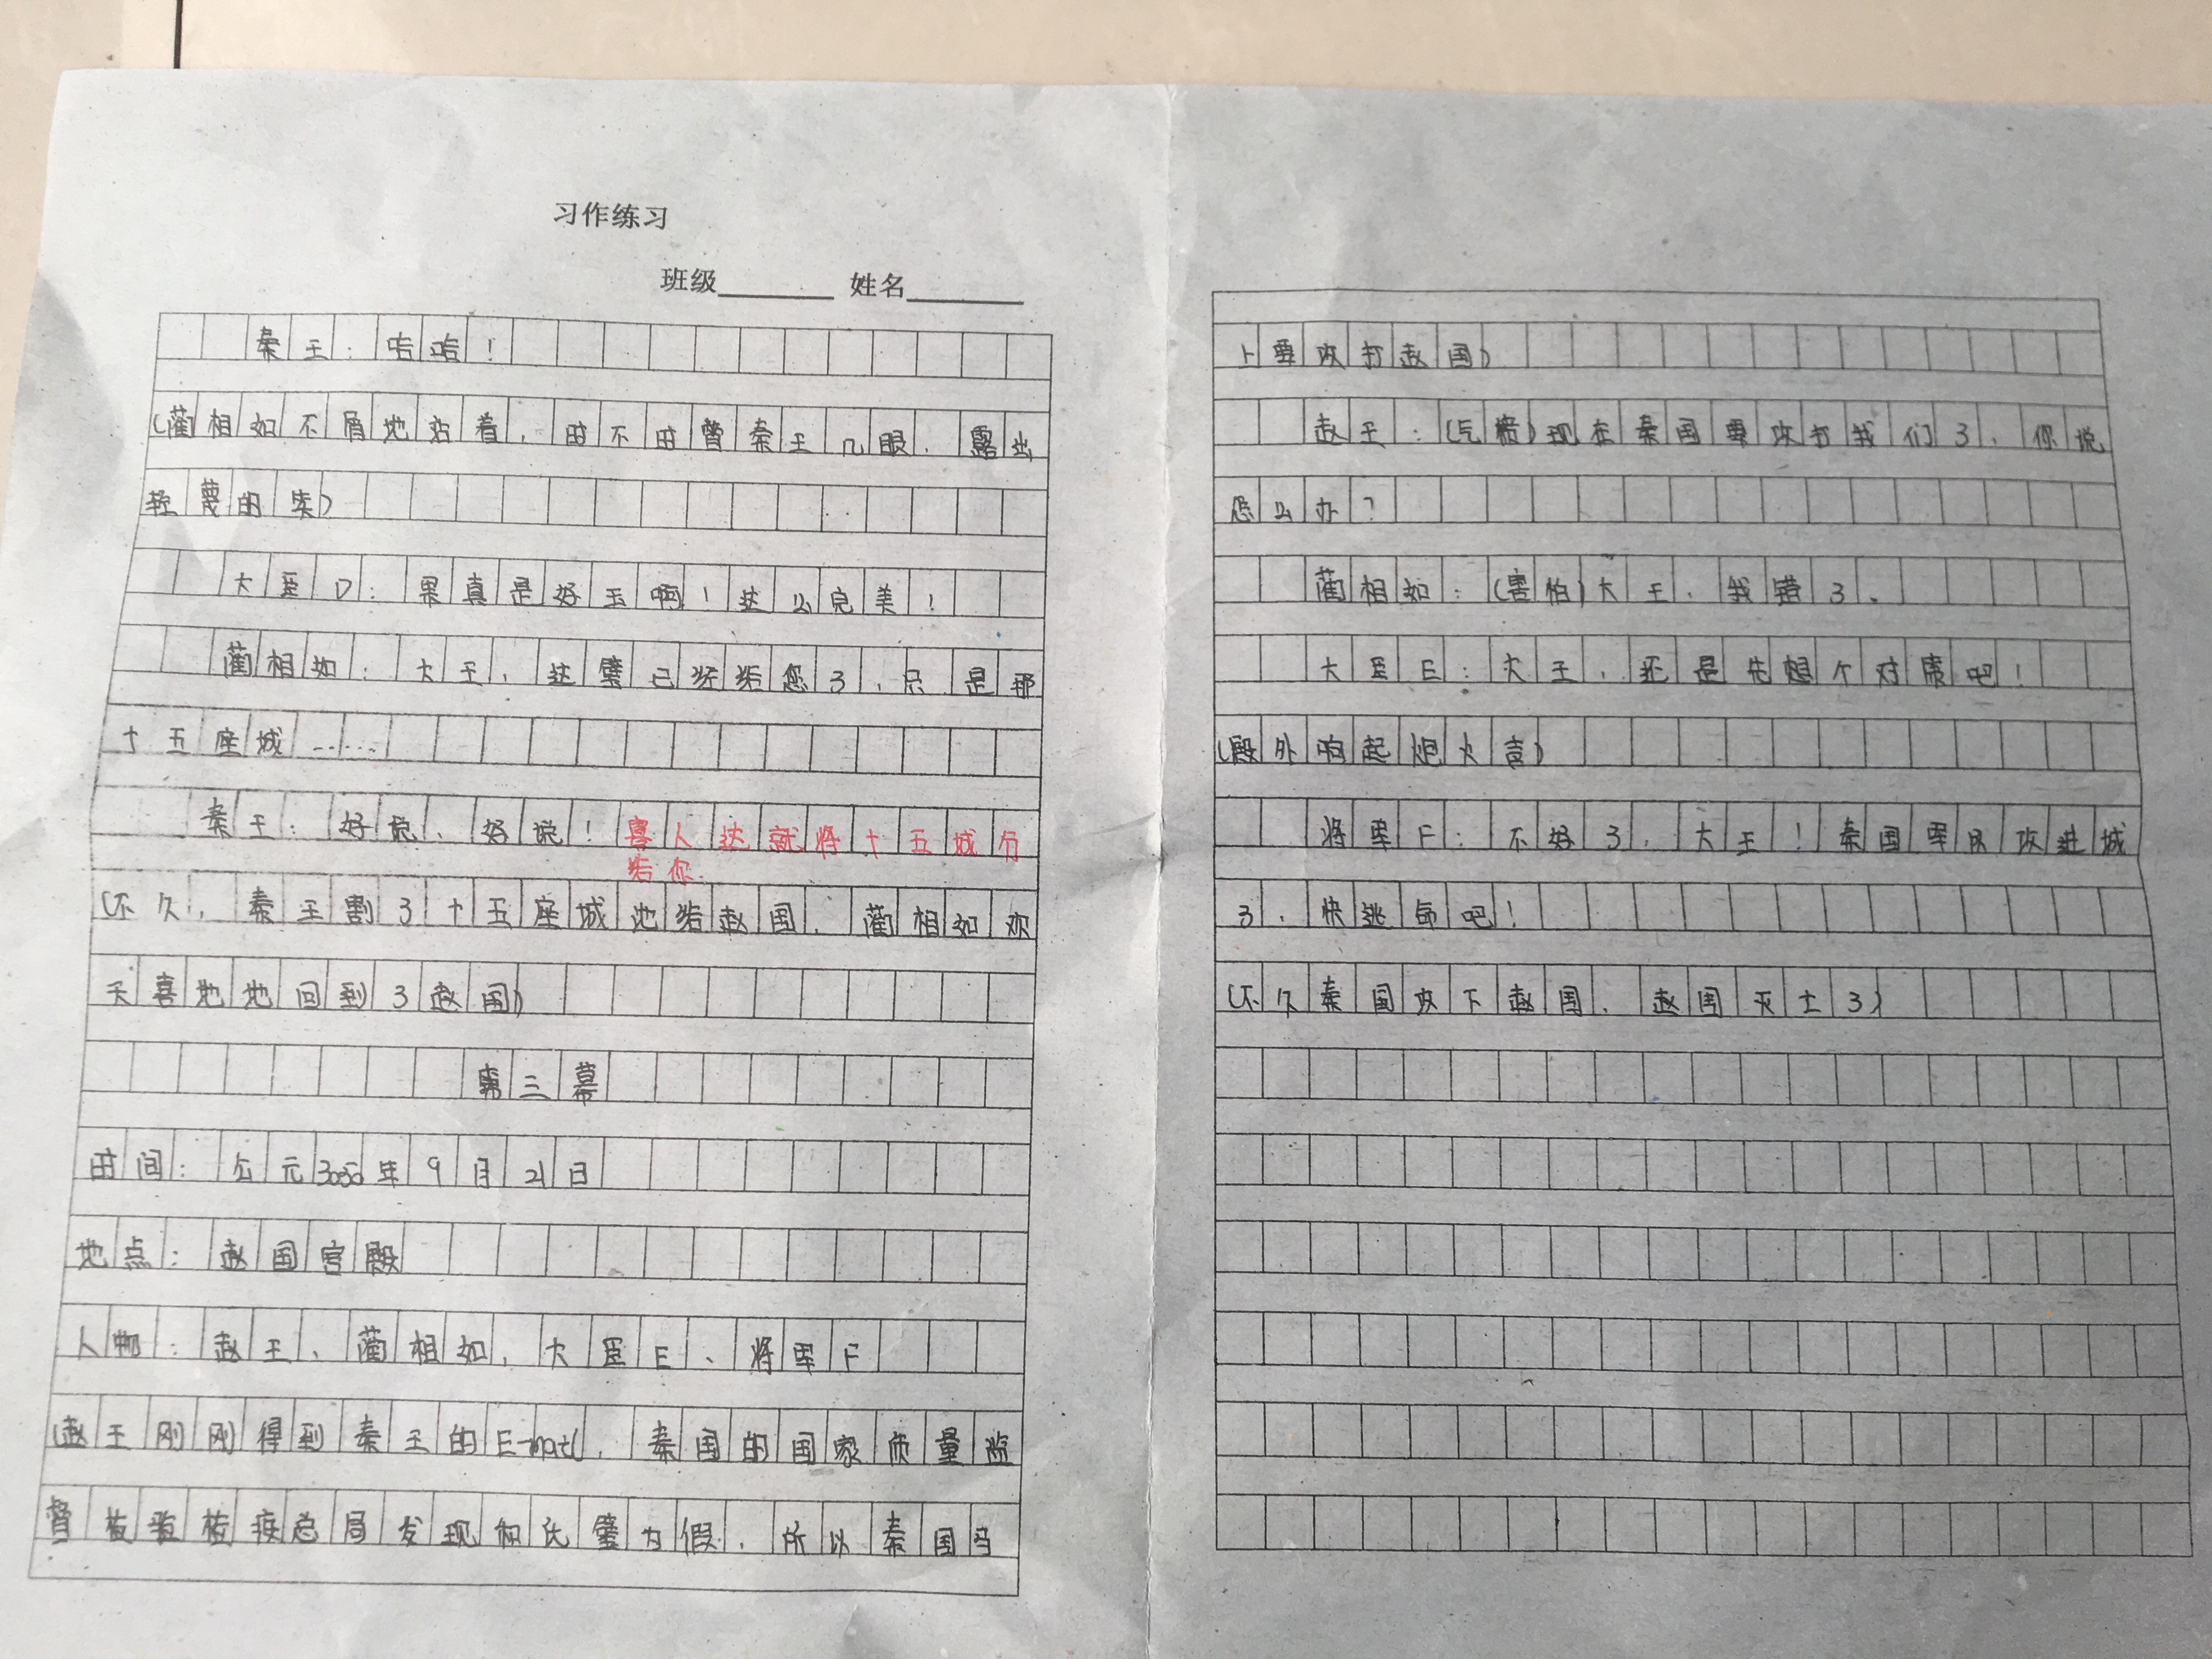 习作练习
班级 姓名
秦王：哈哈！
（蔺相如不屑地站着，时不时瞥秦王几眼，露出
轻蔑的笑）
大臣D：果真是好玉啊！这么完美！
蔺相如：大王，这璧已经给您了，只是那
十五座城……
秦王：好说、好说！寡人这就将十五城分
给你.
（不久，秦王割了十五座城池给赵国，蔺相如欢
天喜地地回到了赵国）
第三幕
时间：公元3050年9月21日
地点：赵国宫殿
人物：赵王、蔺相如、大臣E、将军F
（赵王刚刚得到秦王的E-mail，秦国的国家质量监
督检验检疫总局发现和氏璧为假，所以秦国马
上要攻打赵国）
赵王：（气愤）现在秦国要攻打我们了，你说
怎么办？
蔺相如：（害怕）大王，我错了。
大臣E：大王，还是先想个对策吧！
（殿外响起炮火声）
将军F：不好了，大王！秦国军队攻进城
了，快逃命吧！
（不久秦国攻下赵国，赵国灭亡了）